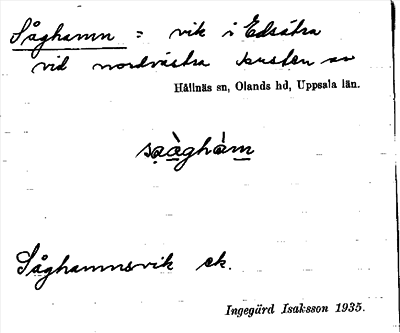 Såghamn = vik i Edsätra
vid nordvästra kusten av
Hållnäs sn, Olands hd, Uppsala län.
sạàghàm
Såghamnsvik ek.
Ingegärd Isaksson 1935.